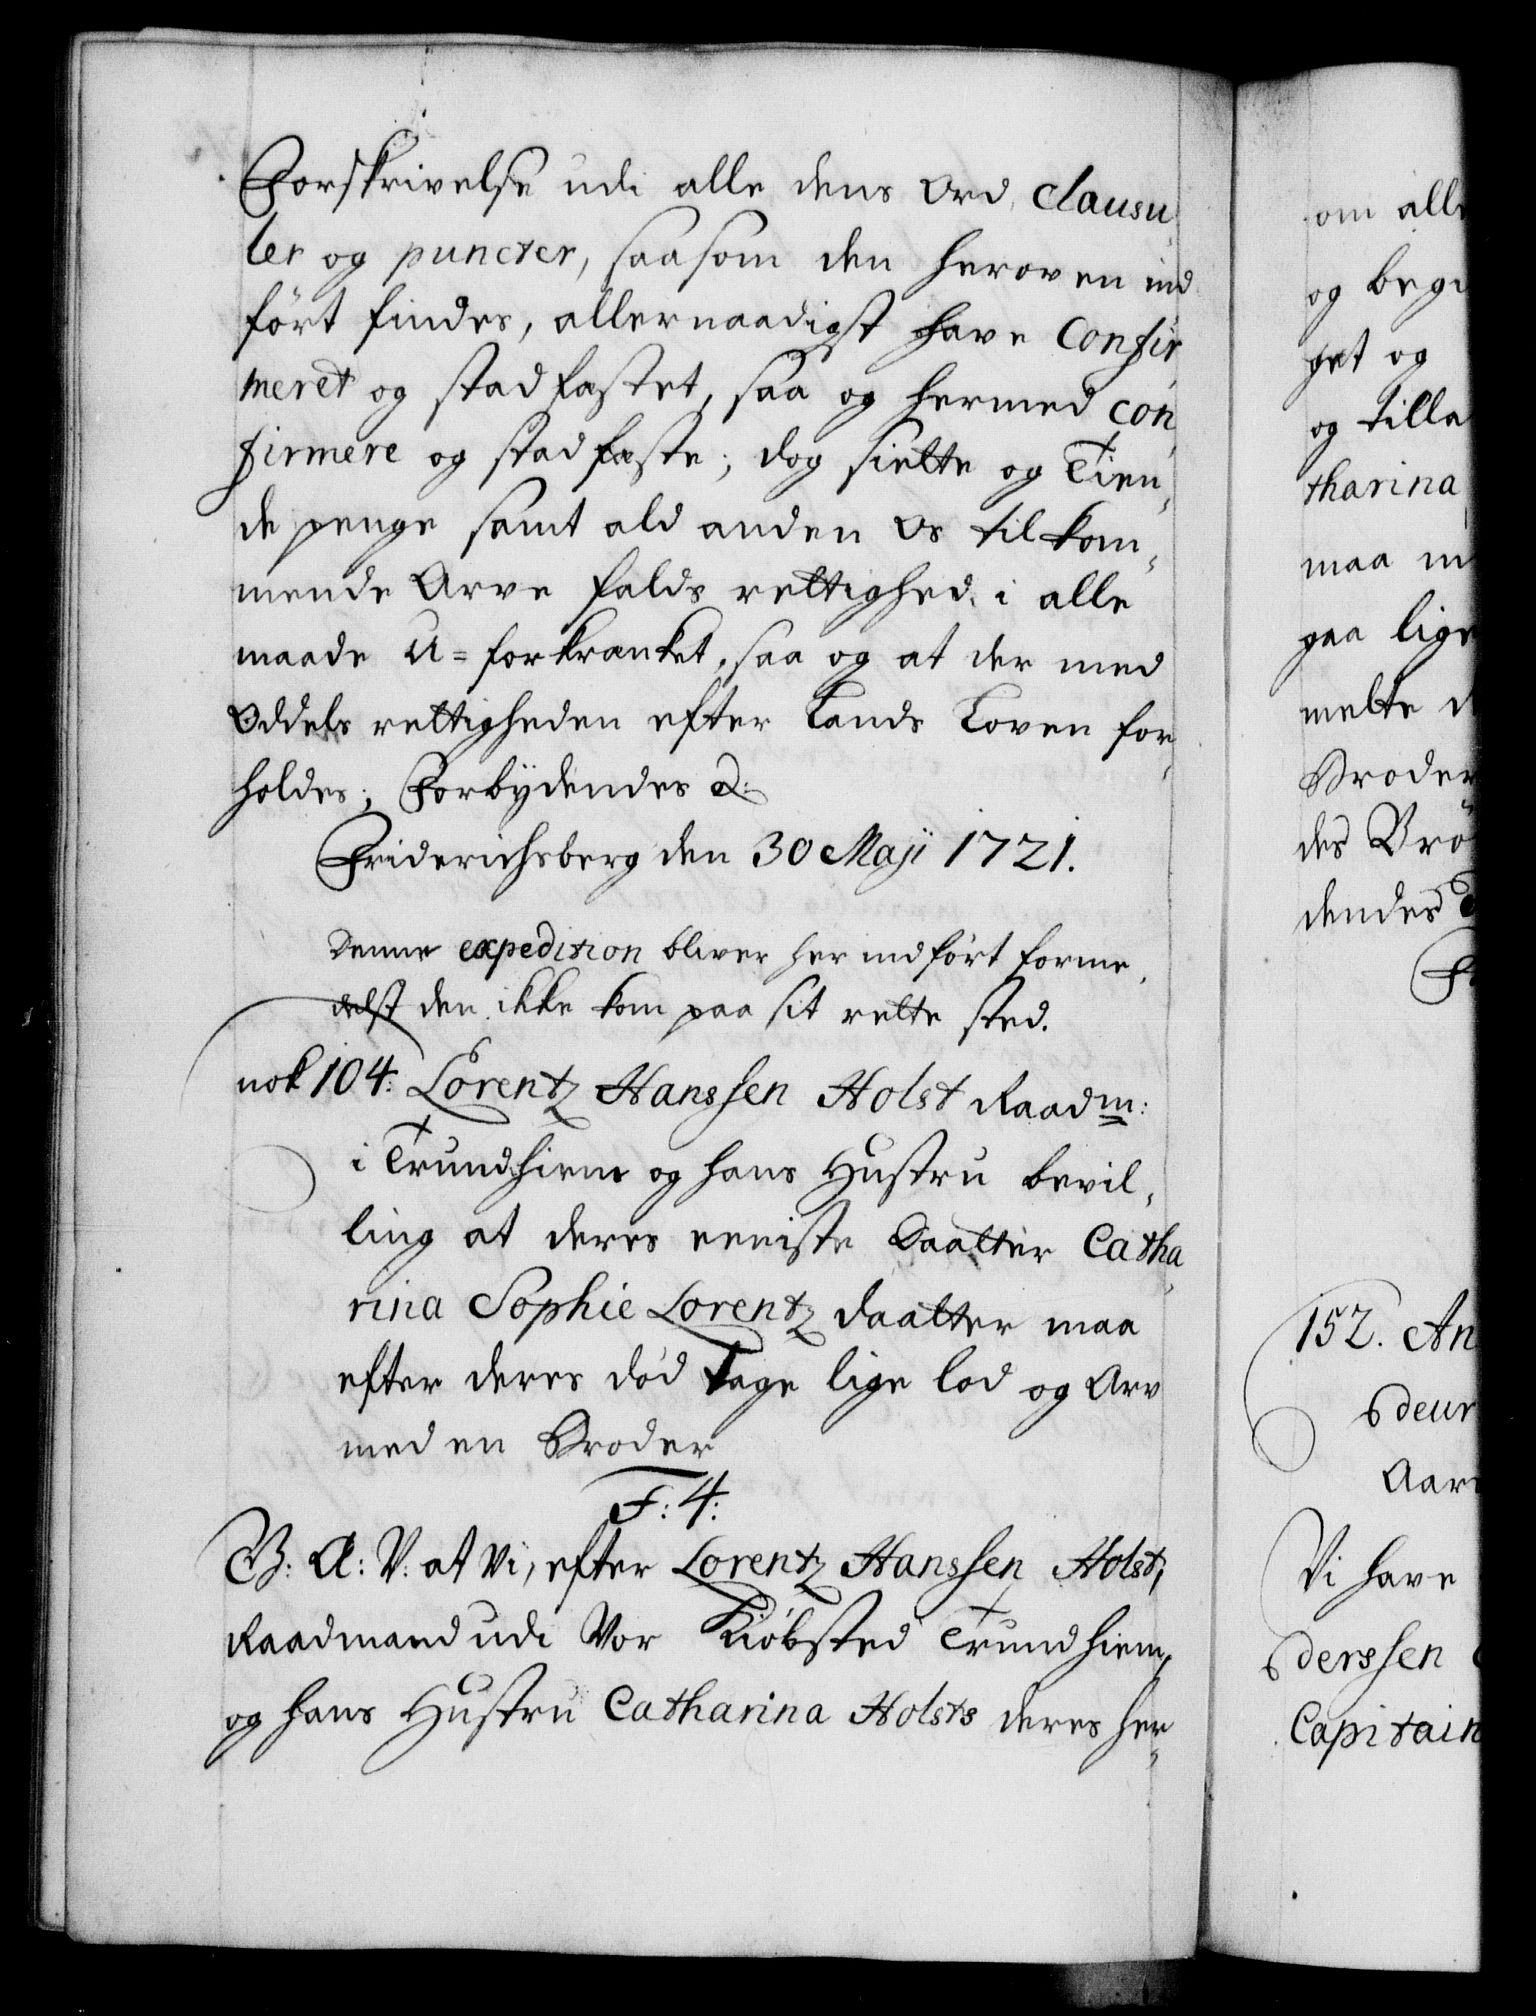 Forskrivelse udi alle dens Ord, clausu
ler og puncter, saasom den heroven ind
ført findes, allernaadigst have Confir
meret og stadfæstet, saa og hermed con,
firmere og stadfæste; dog siette og Tien,
de penge samt ald anden Os tilkom,
mende Arve falds rettighed, i alle
maade U=forkrænket, saa og at der med
Oddels rettigheden efter Lands Loven for,
holdes; Forbydendes &:
Friderichsberg den 30 Maji 1721.
Denne expedition bliver her indført forme,
delst den ikke kom paa sit rette sted.
nok 104: Lorentz Hanssen Holst Raadm:
i Trundhiem og hans Hustru bevil,
ling at deres eeniste Daatter Catha
rina Sophie Lorentz daatter maa
efter deres død tage lige lod og Arv
med en Broder
F: 4:
G: A: V: at Vi, efter Lorentz Hanssen Holst,
Raadmand udi Vor Kiøbsted Trundhiem,
og hans Hustru Catharina Holsts deres her,
om alle
og begi
get og
og tilla
tharina
maa m
gaa lige
melte d
Broder
des Brö
dendes
152. An
deur
Aar
Vi have
derssen
Capitain